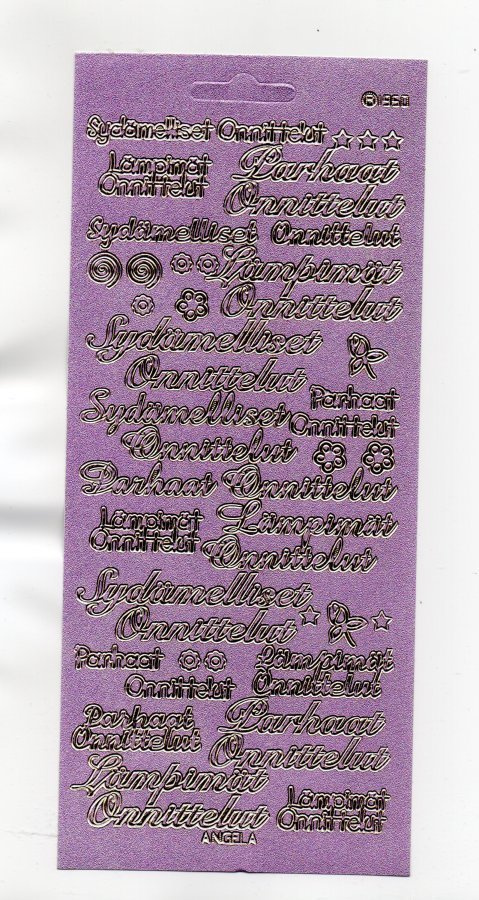 Sydämelliset Onnittelut
Lämpimät
Onnittelut
Parhaat
Onnittelut
Sydämelliset Onnittelut
Lämpimät
Onnittelut
Sydämelliset
Onnittelut
Parhaat
Onnittelut
Sydämelliset
Onnittelut
Parhaat Onnittelut
Lämpimät
Onnittelut
Lämpimät
Onnittelut
Sydämelliset
Onnittelut
Parhaat
Onnittelut
Lämpimät
Onnittelut
Parhaat
Onnittelut
Parhaat
Onnittelut
Lämpimät
Onnittelut
Lämpimät
Onnittelut
ANGELA